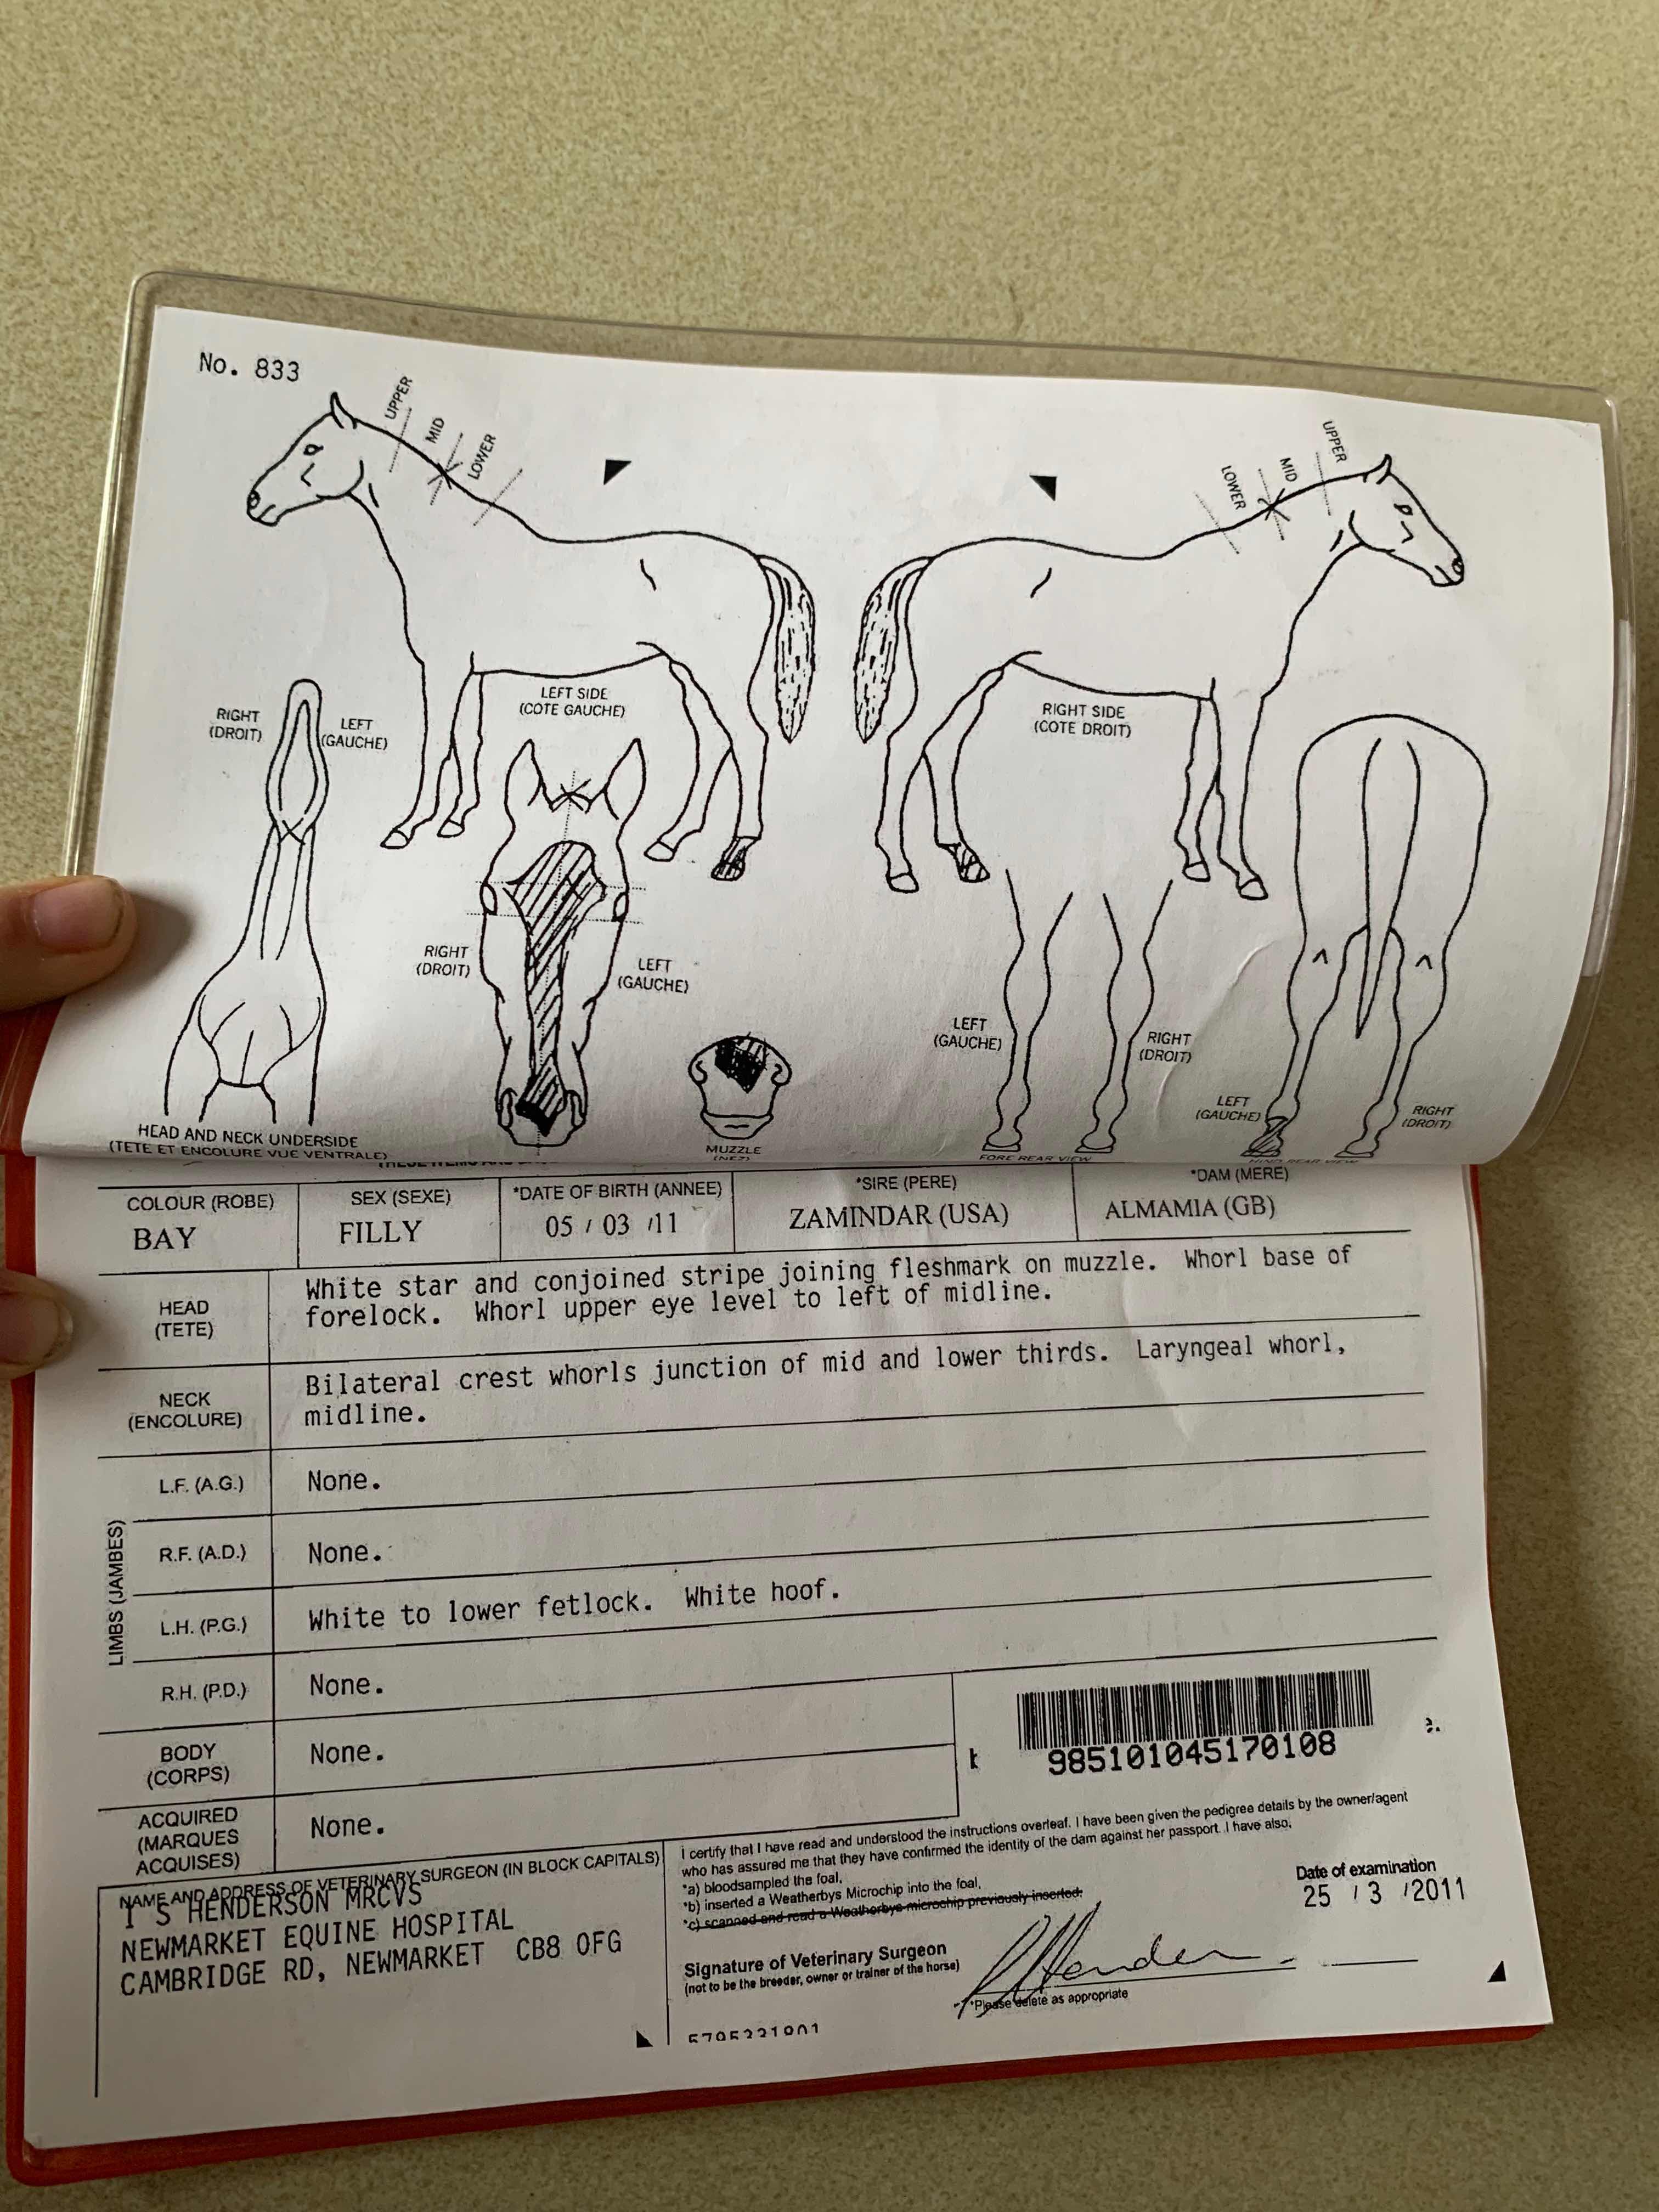 No. 833
UPPER
MID
LOWER
LOWER
MID
UPPER
LEFT SIDE
(COTE GAUCHE)
RIGHT SIDE
(COTE DROIT)
RIGHT
(DROIT)
LEFT
(GAUCHE)
RIGHT
(DROIT)
LEFT
(GAUCHE)
LEFT
(GAUCHE)
RIGHT
(DROIT)
LEFT
(GAUCHE)
RIGHT
(DROIT)
HEAD AND NECK UNDERSIDE
(TETE ET ENCOLURE VUE VENTRALE)
MUZZLE
(NEZ)
FORE REAR VIEW
HIND REAR VIEW
THESE ITEMS
COLOUR (ROBE)
BAY
SEX (SEXE)
FILLY
*DATE OF BIRTH (ANNEE)
05 / 03 /11
*SIRE (PERE)
ZAMINDAR (USA)
*DAM (MERE)
ALMAMIA (GB)
HEAD
(TETE)
White star and conjoined stripe joining fleshmark on muzzle. Whorl base of
forelock. Whorl upper eye level to left of midline.
NECK
(ENCOLURE)
Bilateral crest whorls junction of mid and lower thirds. Laryngeal whorl,
midline.
LIMBS (JAMBES)
L.F. (A.G.)
None.
R.F. (A.D.)
None.
L.H. (P.G.)
White to lower fetlock. White hoof.
R.H. (P.D.)
None.
BODY
(CORPS)
None.
ACQUIRED
(MARQUES
ACQUISES)
None.
985101045170108
NAME AND ADDRESS OF VETERINARY SURGEON (IN BLOCK CAPITALS)
I S HENDERSON MRCVS
NEWMARKET EQUINE HOSPITAL
CAMBRIDGE RD, NEWMARKET CB8 0FG
I certify that I have read and understood the instructions overleaf. I have been given the pedigree details by the owner/agent
who has assured me that they have confirmed the identity of the dam against her passport. I have also;
*a) bloodsampled the foal,
*b) inserted a Weatherbys Microchip into the foal,
*c) scanned and read a Weatherbys microchip previously inserted.
Date of examination
25 / 3 /2011
Signature of Veterinary Surgeon
(not to be the breeder, owner or trainer of the horse)
*Please delete as appropriate